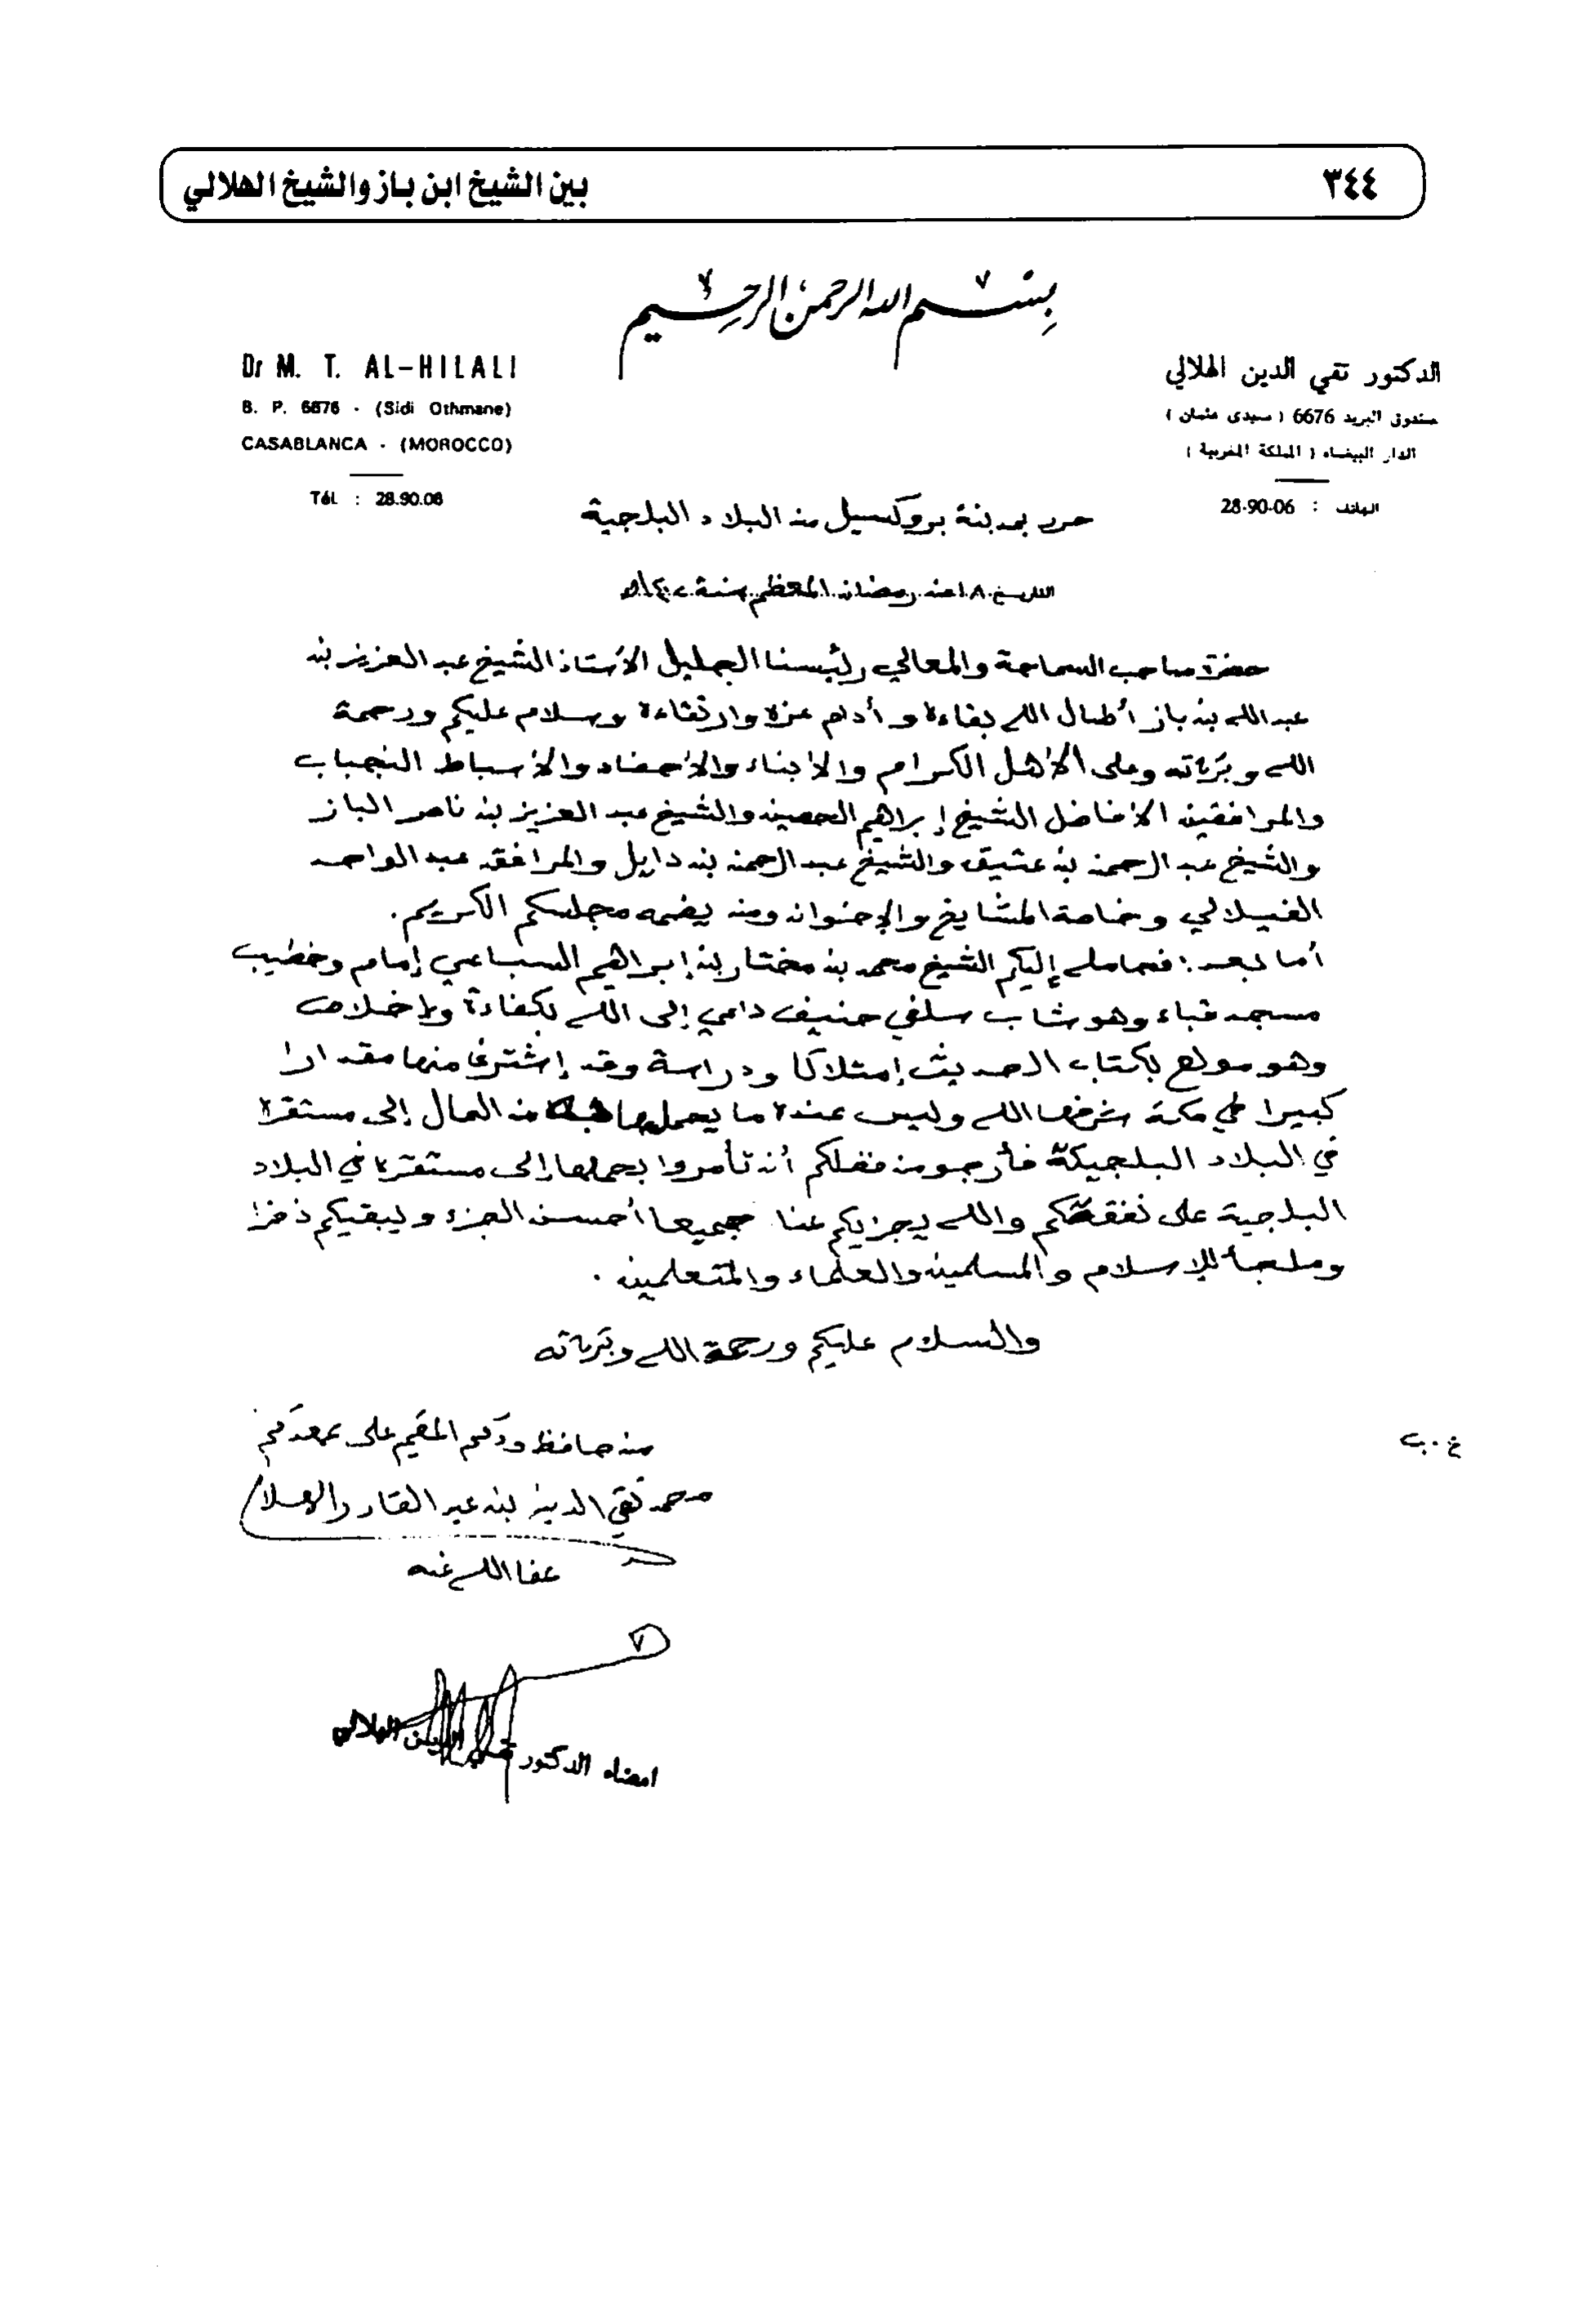 ٣٤٤
بين الشيخ ابن باز والشيخ الهلالي
بسم الله الرحمن الرحيم
الدكتور تقي الدين الهلالي
صندوق البريد 6676 ( سيدي عثمان )
الدار البيضاء ( المملكة المغربية )
الهاتف : 28-90-06
Dr M. T. AL-HILALI
B. P. 6676 - (Sidi Othmane)
CASABLANCA - (MOROCCO)
Tél. : 28.90.06
حرر بمدينة بروكسيل من البلاد البلجية
التاريخ ١٨ من رمضان المعظم سنة
حضرة صاحب السماحة والمعالي رئيسنا الجليل الأستاذ الشيخ عبد العزيز بن
عبد الله بن باز أطال الله بقاءه وأدام عزه وارتقاءه وسلام عليكم ورحمة
الله وبركاته وعلى الأهل الكرام والأبناء والأحفاد والأسباط النجباب
والمرافقين الأفاضل الشيخ إبراهيم الحصين والشيخ عبد العزيز بن ناصر الباز
والشيخ عبد الرحمن بن عتيق والشيخ عبد الرحمن بن دايل والمرافق عبد الواحد
الفيلالي وخاصة المشايخ والإخوان ومن يضمه مجلسكم الكريم.
أما بعد: فحامله إليكم الشيخ محمد بن مختار بن إبراهيم السباعي إمام وخطيب
مسجد قباء وهو شاب سلفي حنيف داعي إلى الله بكفاءة وإخلاص
وهو مولع بكتاب الحديث إمتلاكا ودراسة وقد إشترى منها مقدارا
كبيرا في مكة شرفها الله وليس عنده ما يحملها من المال إلى مستقره
في البلاد البلجيكة فأرجو من فضلكم أن تأمروا بحملها إلى مستقره في البلاد
البلجية على نفقتكم والله يجزيكم عنا جميعا أحسن الجزء ويبقيكم ذخرا
وملجأ للإسلام والمسلمين والعلماء والمتعلمين .
والسلام عليكم ورحمة الله وبركاته
من حافظ ودكم المقيم على عهدكم
غ . ب
محمد تقي الدين بن عبد القادر الهلالي
عفا الله عنه
امضاء الدكتور تقي الدين الهلالي